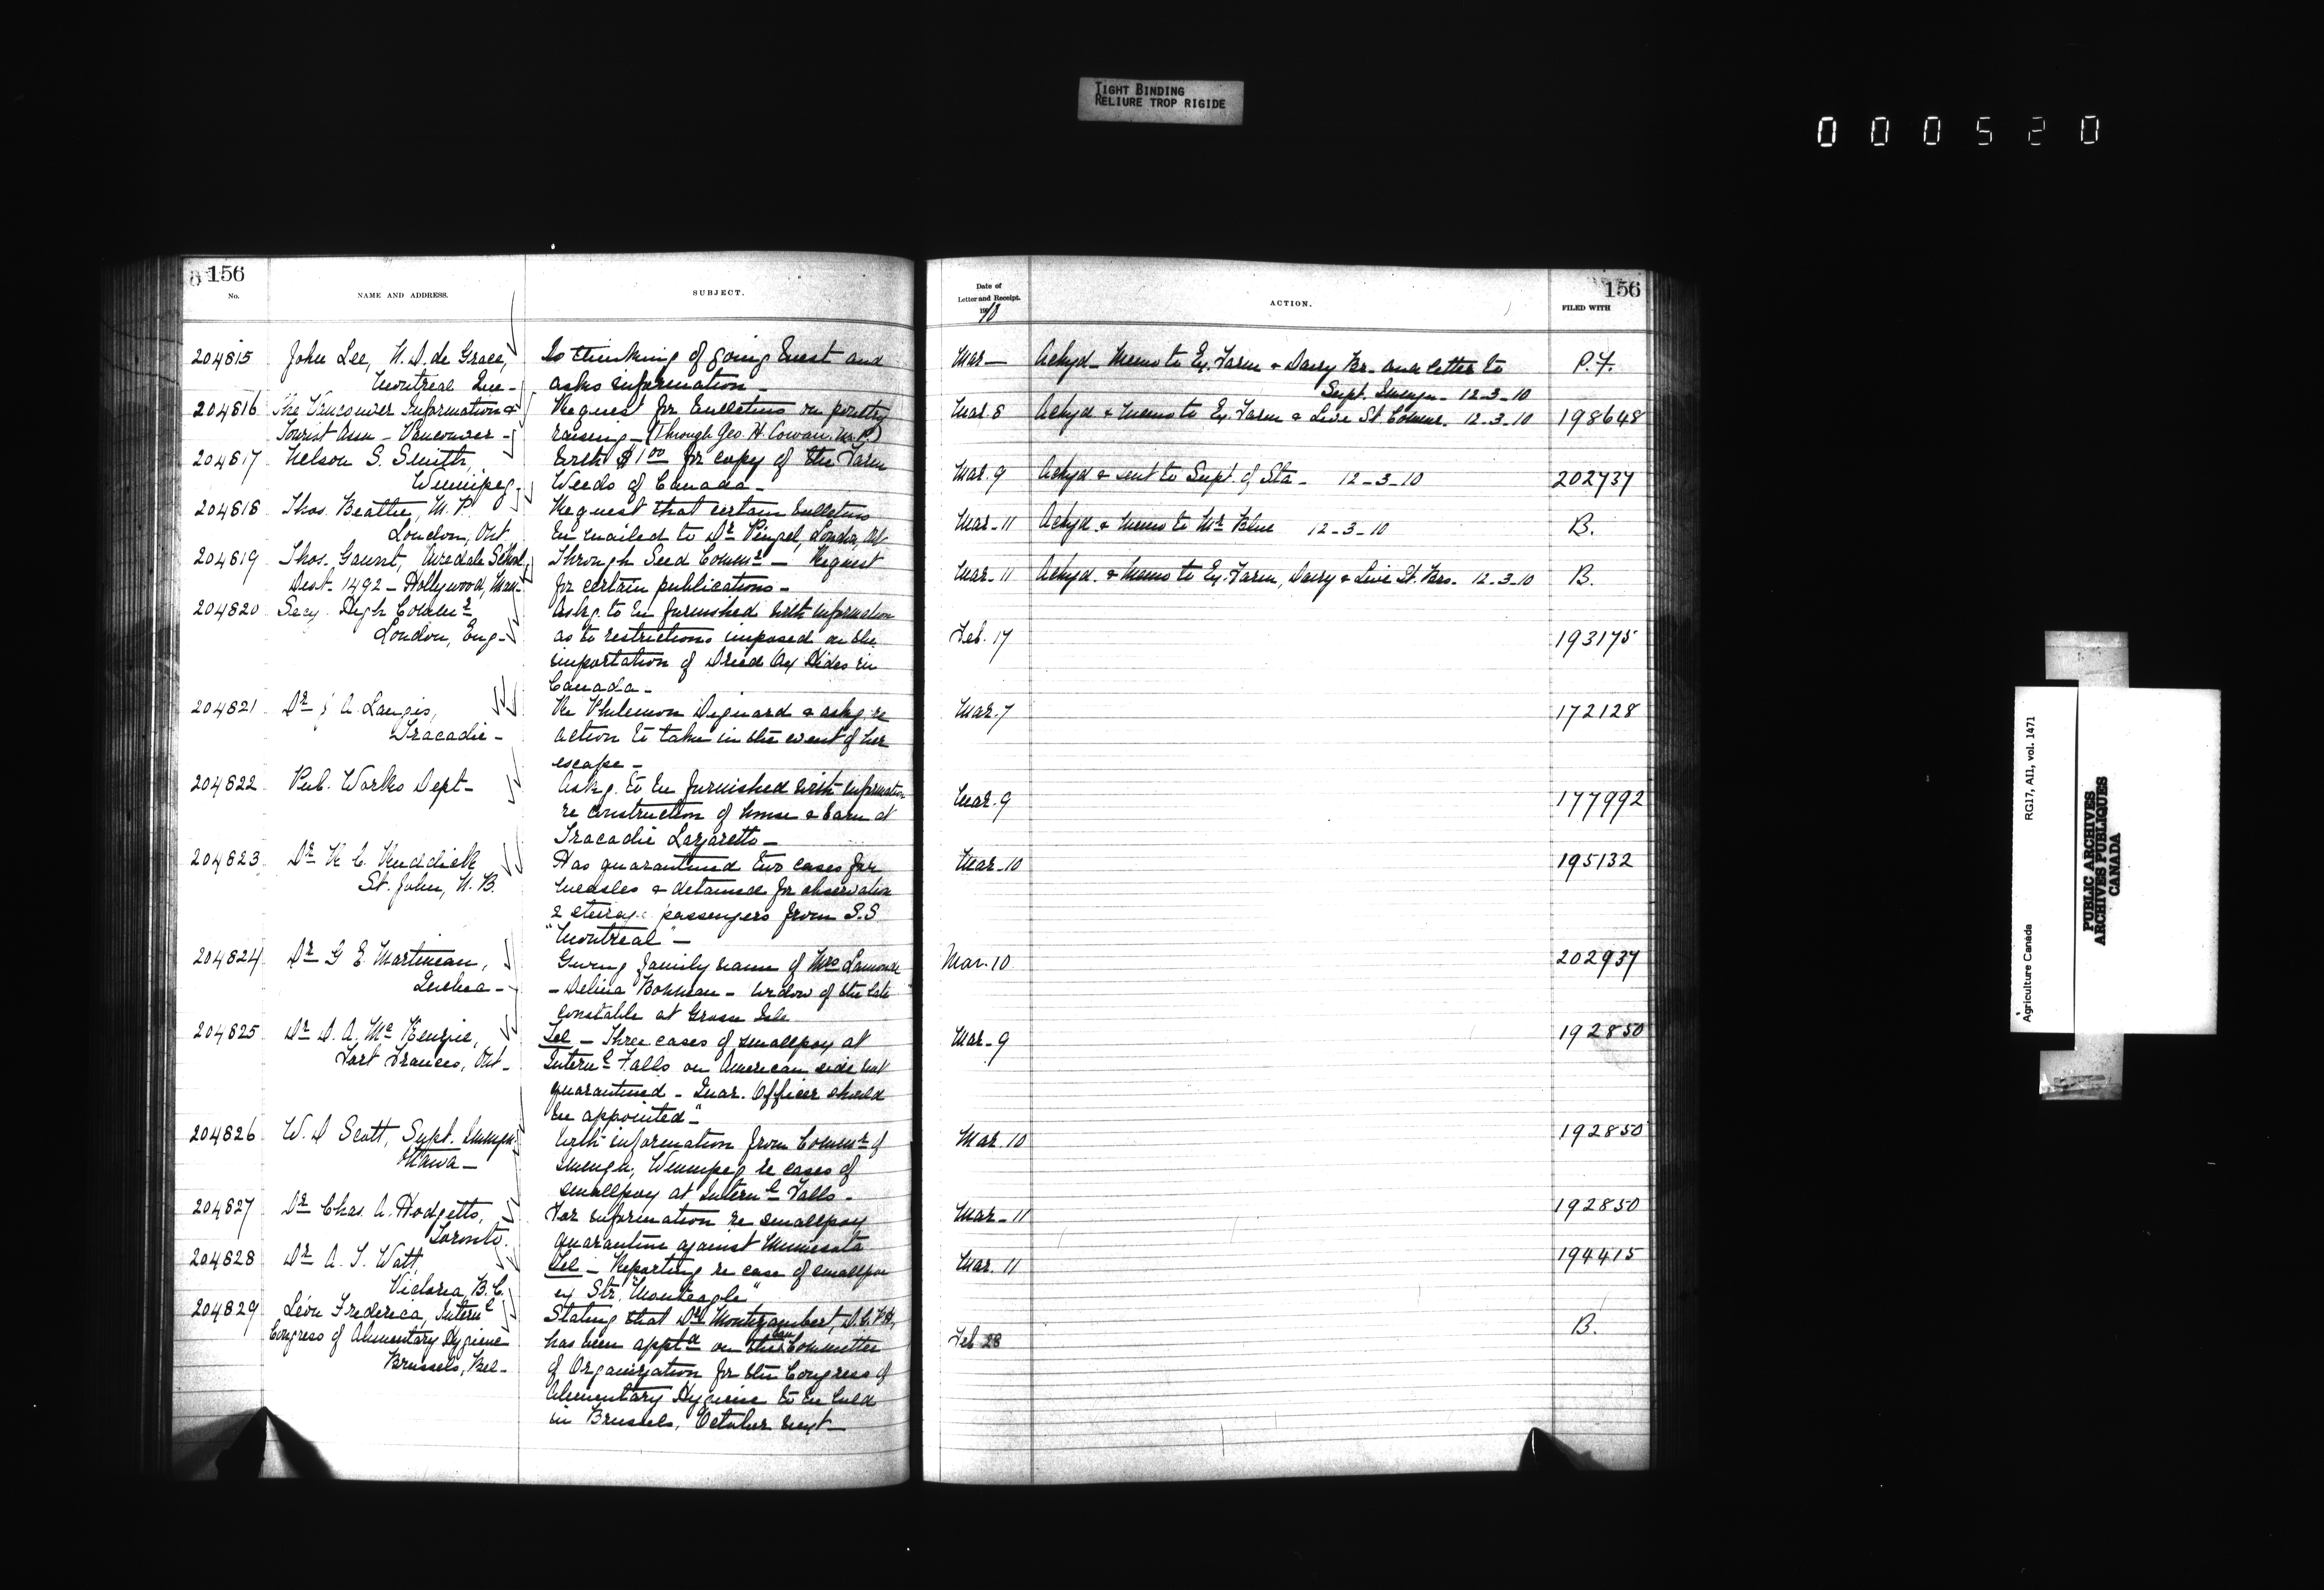 TIGHT BINDING
RELIURE TROP RIGIDE
000520
156
No.
NAME AND ADDRESS.
SUBJECT.
204815 John Lee, N. D. de Grace,
Montreal Que-
Is thinking of going West and
asks information-
204816 The Vancouver Information &
Tourist Assn - Vancouver -
Request for bulletins on poultry
raising - (Through Geo. H. Cowan. M.P.)
204817 Nelson S. Smith,
Winnipeg-
With $1.00 for copy of the Farm
Weeds of Canada-
204818 Thos. Beattie, M. P.
London, Ont.
Request that certain bulletins
be mailed to Dr London, Ont
204819 Thos. Gaunt, Airedale School
Dist. 1492 - Hollywood, Man-
Through Seed Commr - Request
for certain publications-
204820 Secy. High Commr
London, Eng-
Askg. to be furnished with information
as to restrictions imposed on the
importation of Dried Ox Hides in
Canada-
204821 Dr J. A. Langis,
Tracadie-
Re Philemon & askg. re
action to take in the event of her
escape-
204822 Pub. Works Dept-
Askg. to be furnished with information
re construction of house & barn at
Tracadie Lazaretto-
204823 Dr R. C. Ruddick
St. John, N. B.
Has quarantined two cases for
measles & detained for observation
2 steerage passengers from S.S
"Montreal"-
204824 Dr G. E. Martineau,
Quebec-
Giving family name of Mrs Lamonde
- Delina - widow of the late
constable at Grosse Isle
204825 Dr D. A. McKenzie,
Fort Frances, Ont-
Tel - Three cases of smallpox at
Internl Falls on American side not
quarantined - Quar. Officer should
be appointed"-
204826 W. D. Scott, Supt. Immgn.
Ottawa-
With information from Commr of
Immgn, Winnipeg re cases of
smallpox at Internl Falls-
204827 Dr Chas. A. Hodgetts,
Toronto.
For information re smallpox
quarantine against Minnesota
204828 Dr A. T. Watt,
Victoria, B.C.
Tel - Reporting re case of smallpox
ex Str. "Monteagle"
204829 Léon Fredericq, Internl
Congress of Alimentary Hygiene
Brussels, Bel-
Stating that Dr Montizambert, D.G.P.H,
has been apptd on the Can Committee
of Organization for the Congress of
Alimentary Hygiene to be held
in Brussels, October next-
156
Date of
Letter and Receipt.
1910
ACTION.
FILED WITH
Mar- Ackgd- Memo to Ex. Farm & Dairy Br. and letter to
Supt. Immgn- 12-3-10
P.F.
Mar. 8 Ackgd & memo to Ex. Farm & Live St Commr. 12-3-10 198648
Mar. 9 Ackgd & sent to Supt. of Sta- 12-3-10 202737
Mar-11 Ackgd. & memo to Mr Blue 12-3-10 B.
Mar-11 Ackgd. & memo to Ex. Farm, Dairy & Live St. Brs- 12-3-10 B.
Feb. 17 193175
Mar. 7 172128
Mar. 9 177992
Mar-10 195132
Mar. 10 202937
Mar-9 192850
Mar. 10 192850
Mar-11 192850
Mar. 11 194415
Feb 28 B.
Agriculture Canada RG17, AII, vol. 1471
PUBLIC ARCHIVES
ARCHIVES PUBLIQUES
CANADA